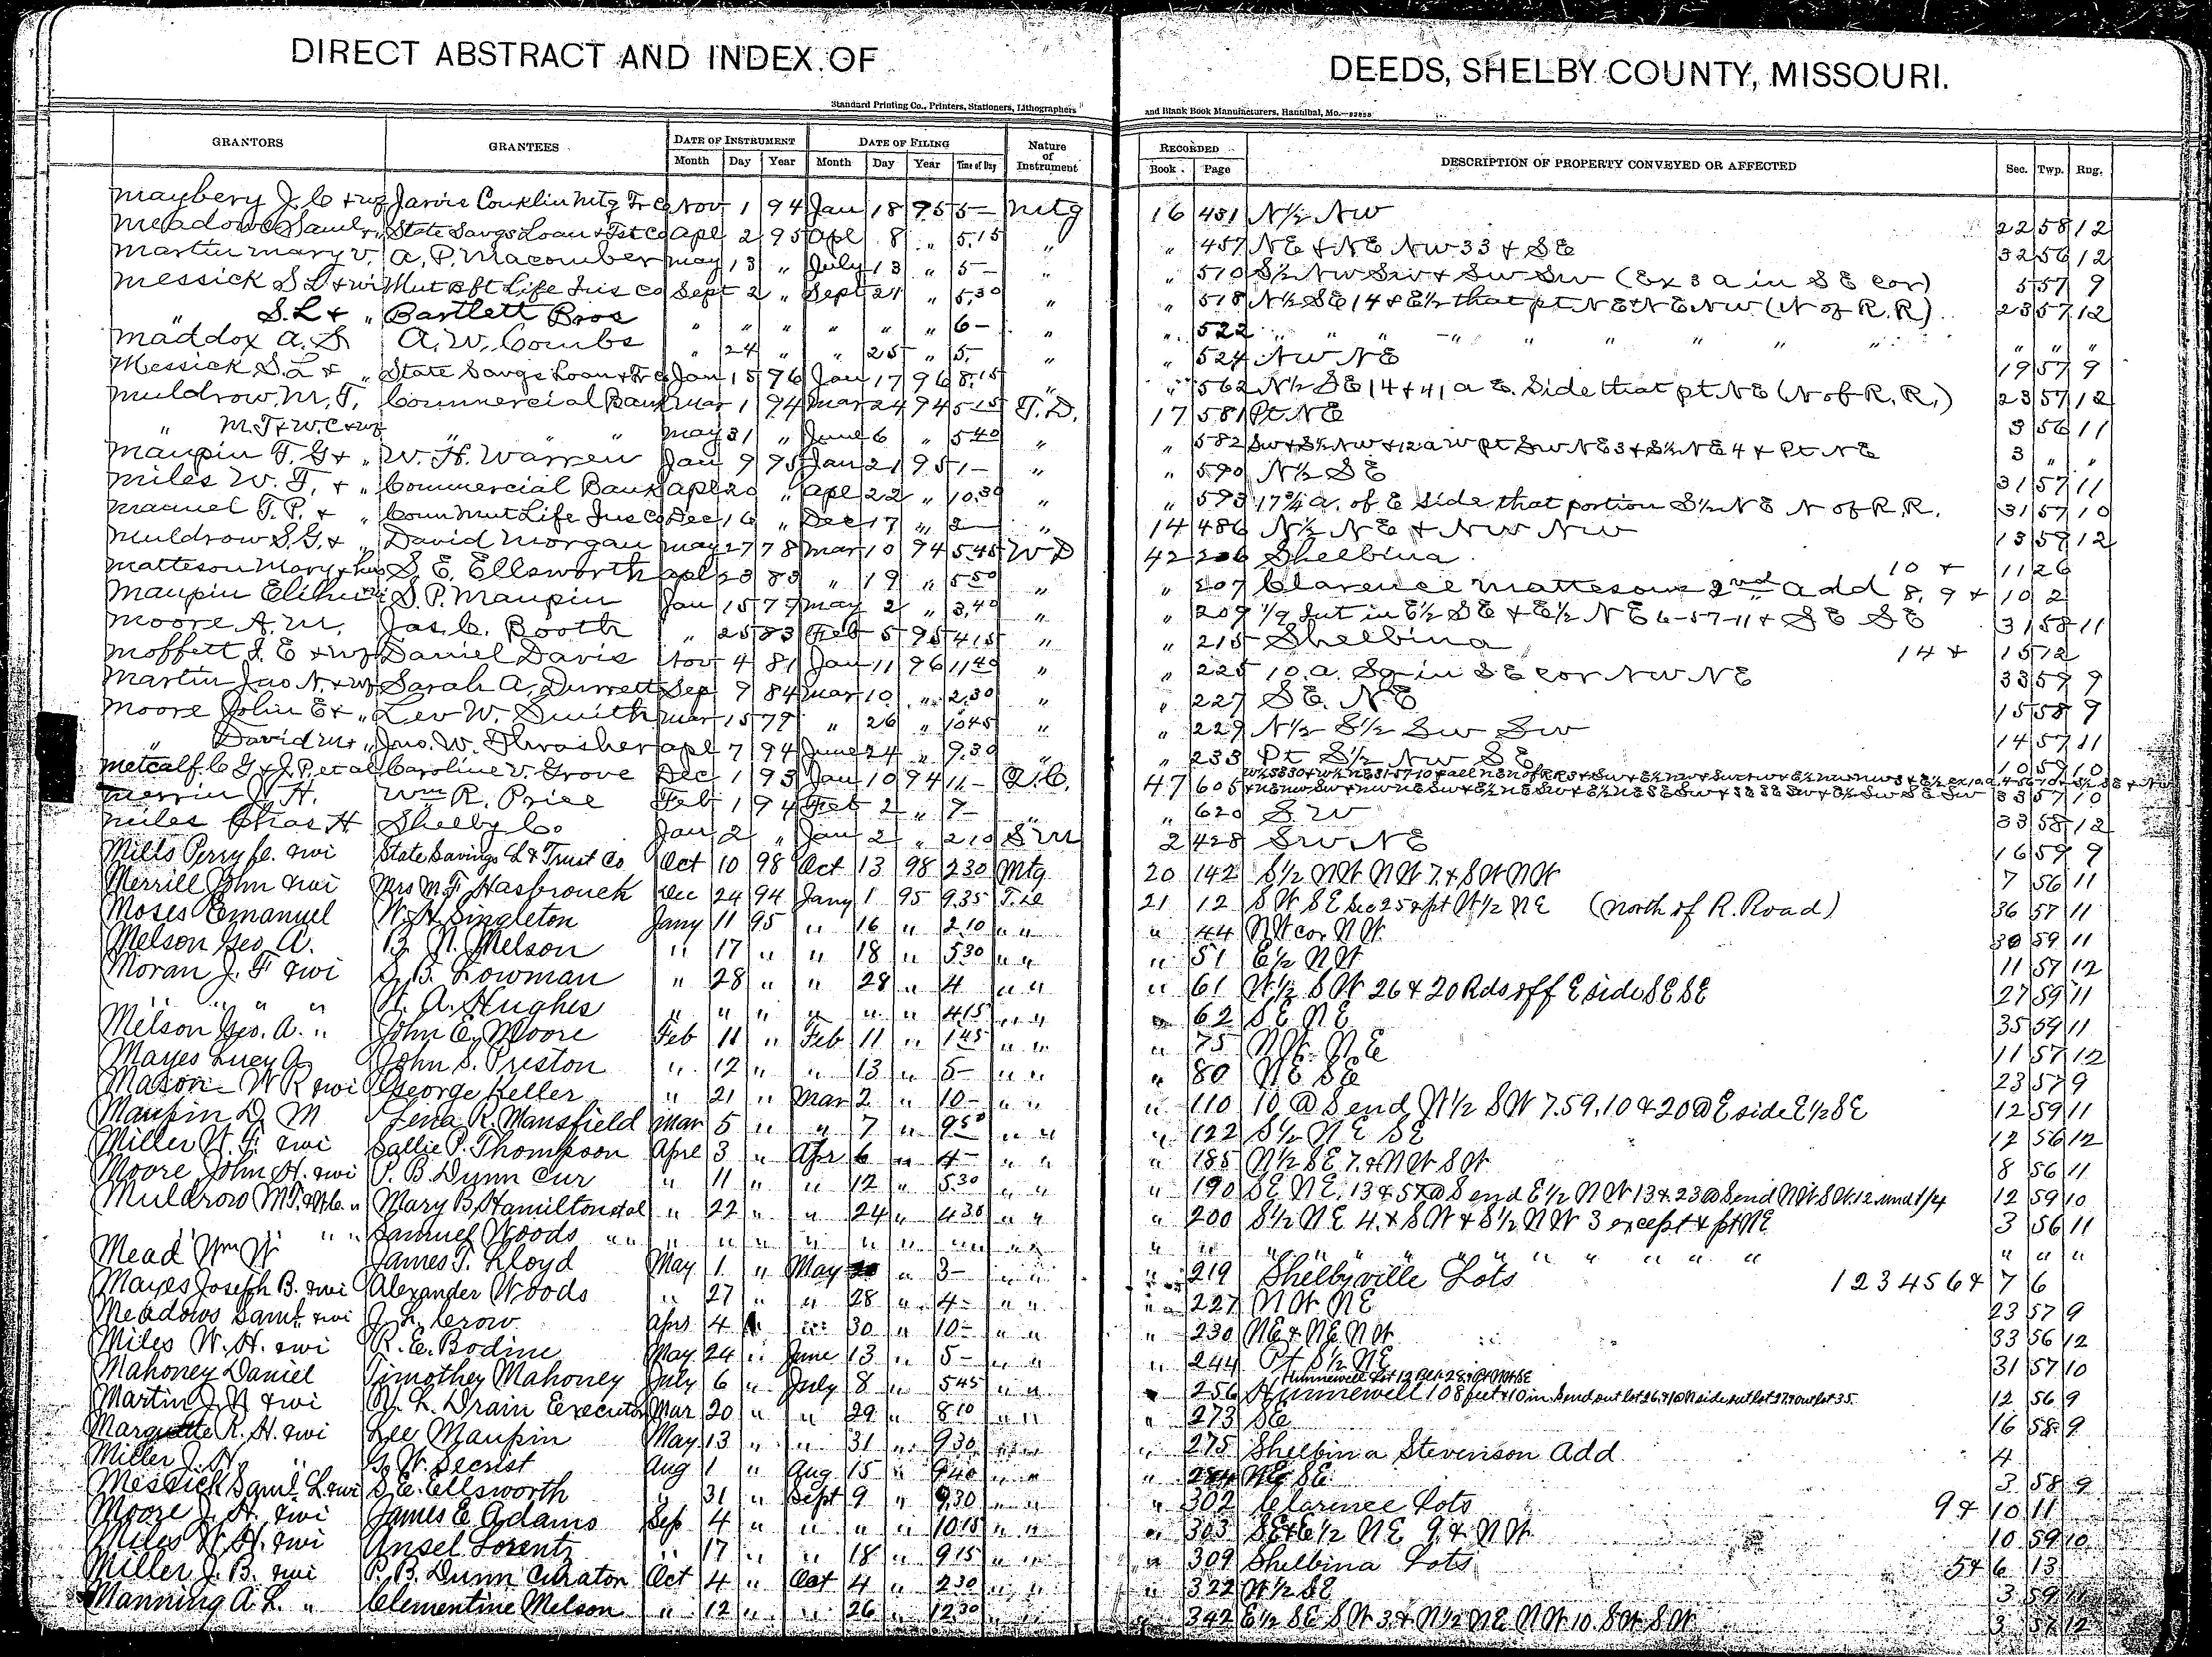 DIRECT ABSTRACT AND INDEX OF DEEDS, SHELBY COUNTY, MISSOURI.
Standard Printing Co., Printers, Stationers, Lithographers and Blank Book Manufacturers, Hannibal, Mo.
GRANTORS GRANTEES DATE OF INSTRUMENT DATE OF FILING Nature of Instrument RECORDED DESCRIPTION OF PROPERTY CONVEYED OR AFFECTED Sec. Twp. Rng.
Month Day Year Month Day Year Time of Day Book Page
Maybery J. C + wf Jarvis Conklin Mtg Tr Co Nov 1 94 Jan 18 95 5— Mtg 16 451 N½ NW 22 58 12
Meadows Saml + " State Savgs Loan + Tst Co Apl 2 95 Apl 8 " 5.15 " " 457 NE & NE NW 33 & SE 32 56 12
Martin Mary V. A. P. Macomber May 13 " July 13 " 5— " " 510 S½ NW SW & SW SW (Ex 3 a in SE cor) 5 57 9
Messick S L + wi Mut Bft Life Ins Co Sept 2 " Sept 21 " 5.30 " " 518 N½ SE 14 & E½ that pt NE & NE NW (N of R.R.) 23 57 12
" S. L + " Bartlett Bros " " " " " " 6— " " 522 " " " " " " " " " "
Maddox A. S. A. W. Combs " 24 " " 25 " 5— " " 524 NW NE 19 57 9
Messick S. L + " State Savgs Loan + Tr Co Jan 15 96 Jan 17 96 8.15 " " 562 N½ SE 14 & 41 a E. Side that pt NE (N of R.R.) 23 57 12
Muldrow M. T. Commercial Bank Mar 1 94 Mar 24 94 5.15 T.D. 17 581 Pt NE 3 56 11
" M. T + W. C + wf " " " May 31 " June 6 " 5.40 " " 582 SW & S½ NW & 12 a W pt SW NE 3 & S½ NE 4 & Pt NE 3 " "
Maupin T. G + " W. H. Warren Jan 9 95 Jan 21 95 1— " " 590 N½ SE 31 57 11
Miles W. T. + " Commercial Bank Apl 20 " Apl 22 " 10.30 " " 593 17¾ a. of E side that portion S½ NE N of R.R. 31 57 10
Manuel T. P. + " Conn Mut Life Ins Co Dec 16 " Dec 17 " 2— " 14 486 N½ NE & NW NW 13 59 12
Muldrow S. G. + " David Morgan May 27 78 Mar 10 94 5.45 WD 42 206 Shelbina 10 + 11 26
Matteson Mary + hus S. E. Ellsworth Apl 23 83 " 19 " 5.50 " " 207 Clarence Mattesons 2nd Add 8, 9 + 10 2
Maupin Elihu S. P. Maupin Jan 15 77 May 2 " 3.40 " " 209 1/9 Int in E½ SE & E½ NE 6-57-11 & SE SE 31 58 11
Moore A. M. Jas. C. Booth " 25 83 Feb 5 95 4.15 " " 215 Shelbina 14 + 15 12
Moffett J. E + wf Daniel Davis Nov 4 81 Jan 11 96 11.40 " " 225 10. a. Sq in SE cor NW NE 33 59 9
Martin Jno N. + wf Sarah A. Durrett Sep 9 84 Mar 10 " 2.30 " " 227 SE. NE 15 58 9
Moore John E + " Lev W. Smith Mar 15 79 " 26 " 10.45 " " 229 N½ S½ SW SW 14 57 11
" David M + " Jno. W. Thrasher Apl 7 94 June 24 " 9.30 " " 233 Pt S½ NW SE 10 59 10
Metcalf C G + J. P. et al Caroline V. Grove Dec 1 93 Jan 10 94 11— Q.C. 47 605 33 57 10
Merrin W. H. Wm R. Price Feb 1 94 Feb 2 " 9— " " 620 S. W 33 58 12
Miles Chas H Shelby Co Jan 2 " Jan 2 " 2.10 S M 2 428 SW NE 16 59 9
Mills Perry C. & wi State Savings L & Trust Co Oct 10 98 Oct 13 98 2.30 Mtg 20 142 S½ NW NW 7. & SW NW 7 56 11
Merrill John & wi Mrs M. F. Hasbrouck Dec 24 94 Jany 1 95 9.35 21 12 SW SE Sec 25 & pt W½ NE (north of R. Road) 36 57 11
Moses Emanuel W. H. Singleton Jany 11 95 " 16 " 2.10 " " " 44 NW cor NW 30 59 11
Melson Geo. A. B. N. Melson " 17 " " 18 " 5.30 " " " 51 E½ NW 11 57 12
Moran J. F & wi S. B. Lowman " 28 " " 28 " 4 " " " 61 W½ SW 26 & 20 Rds off E side SE SE 27 59 11
" " " " W. A. Hughes " " " " " " 4.15 " " " 62 SE NE 35 59 11
Melson Geo. A. " John E. Moore Feb 11 " Feb 11 " 1.45 " " " 75 NW. NE 11 57 12
Mayes Lucy A John S. Preston " 12 " " 13 " 5— " " " 80 NE SE 23 57 9
Mason W R & wi George Keller " 21 " Mar 2 " 10— " " " 110 10 @ S end W½ SW 7. 59. 10 & 20 @ E side E½ SE 12 59 11
Maupin D. M Lena R. Mansfield Mar 5 " " 7 " 9.50 " " " 122 S½ NE SE 12 56 12
Miller W. F. & wi Sallie P. Thompson Aprl 3 " Apr 6 " 4— " " " 185 N½ SE 7. & NW SW 8 56 11
Moore John H. & wi P. B. Dunn Cur " 11 " " 12 " 5.30 " " " 190 SE NE. 13 & 57 @ S end E½ NW 13 & 23 @ S end NW SW. 12 und 1/4 12 59 10
Muldrow M. T. & W. C. " Mary B. Hamilton et al " 22 " " 24 " 4.30 " " " 200 S½ NE 4. & SW & S½ NW 3 except & pt NE 3 56 11
" " " Samuel Woods " " " " " " " " " " " " " " " " " " " " " " " "
Mead Wm W James T. Lloyd May 1 " May " 3— " " " 219 Shelbyville Lots 1 2 3 4 5 6 & 7 6
Mayes Joseph B. & wi Alexander Woods " 27 " " 28 " 4— " " " 227 NW NE 23 57 9
Meadows Saml & wi J. L. Crow Apr 4 " " 30 " 10— " " " 230 NE & NE NW 33 56 12
Miles W. H. & wi R. E. Bodine May 24 " June 13 " 5— " " " 244 Pt S½ NE 31 57 10
Mahoney Daniel Timothey Mahoney July 6 " July 8 " 5.45 " " " 256 Hunnewell 108 feet & 10 in. S end out lot 12 56 9
Martin J. N & wi W. L. Drain Executor Mar 20 " " 29 " 8.10 " " " 273 SE 16 58 9
Marquette R. H. & wi Lee Maupin May 13 " " 31 " 9.30 " " " 275 Shelbina Stevenson Add 4
Miller J. H. " G. W. Secrist Aug 1 " Aug 15 " 9.40 " " " 284 NE SE 3 58 9
Messick Saml L & wi S. E. Ellsworth " 31 " Sept 9 " 9.30 " " " 302 Clarence Lots 9 & 10 11
Moore J. H. & wi James E. Adams Sep 4 " " " " 10.15 " " " 303 SE & E½ NE 9. & NW 10 59 10
Miles W. H. & wi Ansel Lorentz " 17 " " 18 " 9.15 " " " 309 Shelbina Lots 5 & 6 13
Miller J. B. & wi P. B. Dunn Curator Oct 4 " Oct 4 " 2.30 " " " 322 W½ SE 3 59 11
Manning A. L. " Clementine Melson " 12 " " 26 " 12.30 " " " 342 E½ SE SW 3. & N½ NE NW 10. SW SW 3 57 12